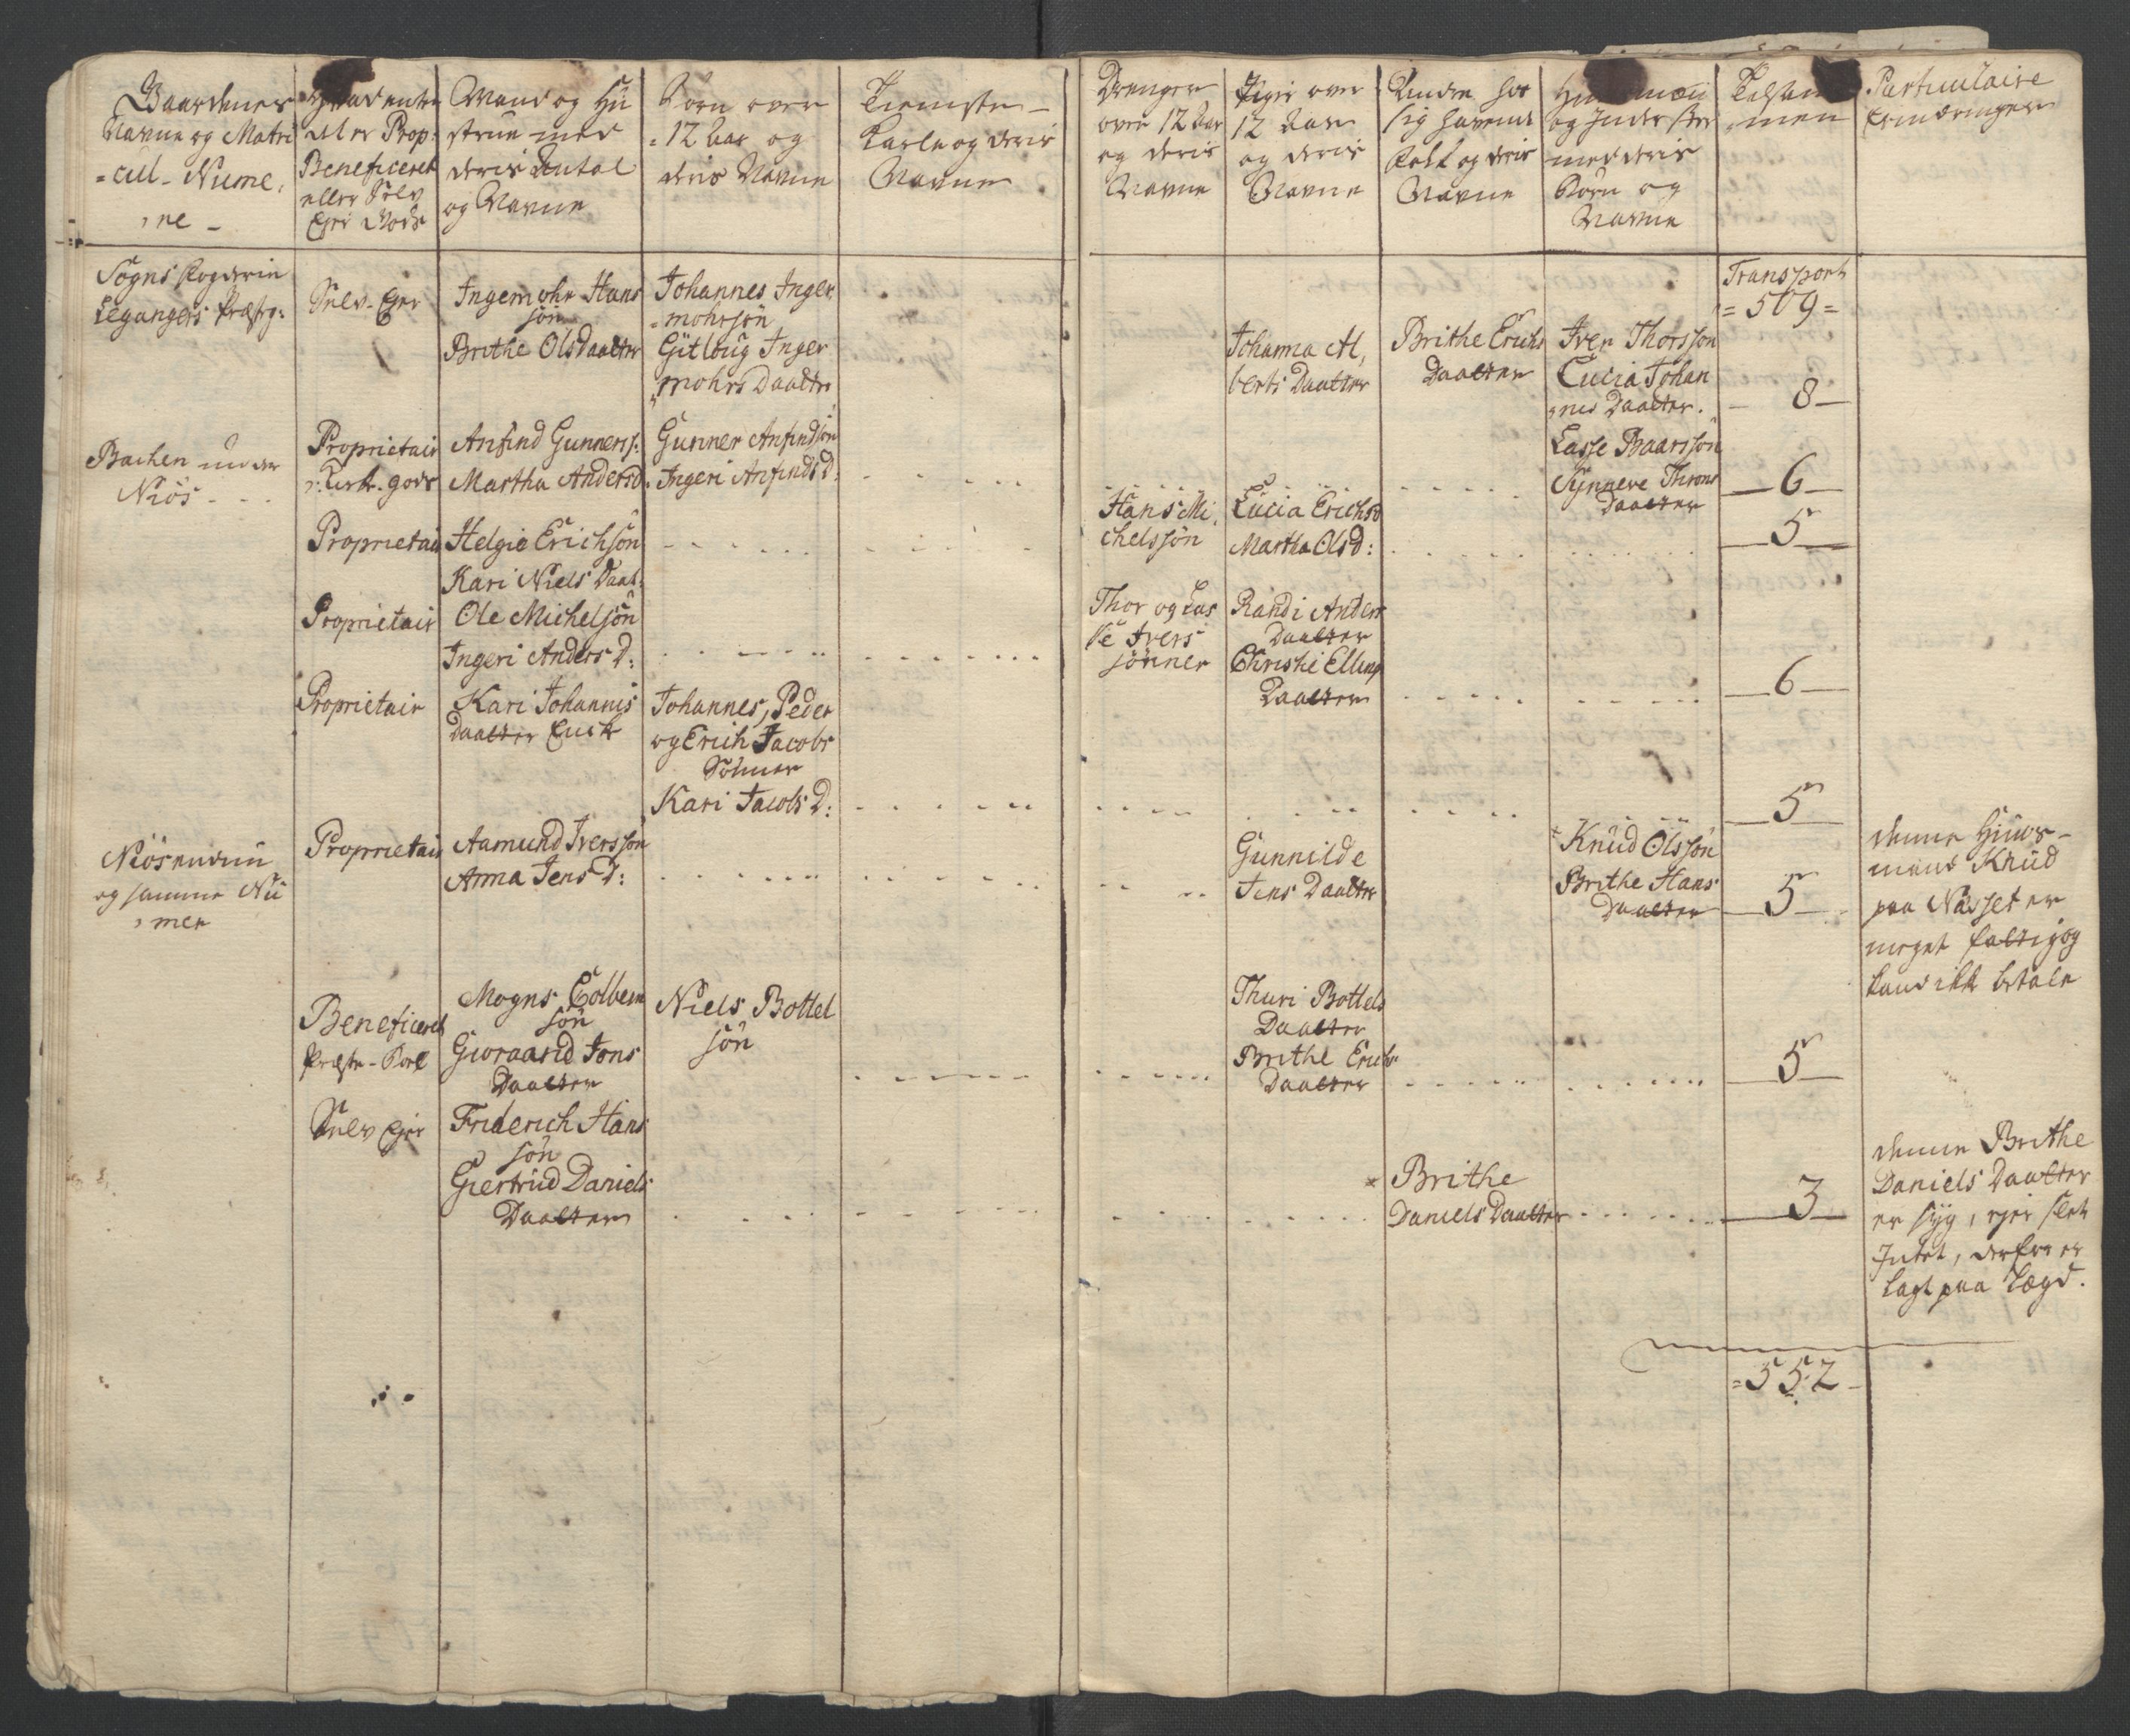 Gaardenes
Navne og Matri
=cul- Nume,
,re -
Prop:
Beneficeret
eller Selv
Ejer Gods
Mand og Hu
strue med
deris Antal
og Navne
Børn over
=12 Aar og
deris Navne
Tieniste-
Karle og deris
Navne
Drenger
over 12 Aar
og deris
Navne
Piger over
12 Aar
og deris
Navne
Andre hos
sig havende
Folk og deris
Navne
og Inderster
med deris
Børn og
Navne
Particulaire
Erindringer
Sogns
Legangers Præstg:
Selv-Ejer
Ingemohr Hans
søn
Brithe Olsdaatter
Johannes Inger
=mohrsøn
Gitloug Inger
mohrs Daatter
Johanna Al,
berts Daatter
Brithe Erichs
Daatter
Iver Thorsson
Lucia Johan
,nes Daatter.
Transport
=509=
- 8 -
Bachen under
Niøs - - -
Proprietair
Kirk. gods
Anfind Gunners:
Martha Andersd.
Gunner Anfindsøn
Ingeri Anfinds D:
Lasse Baarsson
Synneve Throns
Daatter
- 6 -
Proprietair
Helgie Erichsøn
Kari Niels Daat:
Hans Mi,
chelssøn
Lucia Erichsd
Martha Ols D:
- 5 -
Proprietair
Ole Michelsøn
Ingeri Anders D:
Thor og Las
se Ivers
sønner
Randi Anders
Daatter
Christie Ellings
Daatter
- 6 -
Proprietair
Kari Johannes
Daatter Enke
Johannes, Peder
og Erich Jacobs
Sønner
Kari Jacobs D:
- 5 -
Niøs
og samme Nu
,mer
Proprietair
Aamund Iversson
Anna Jens D:
Gunnilde
Jens Daatter
Knud Olsson
Brithe Hans
Daatter
- 5 -
denne Huus-
mand Knud
paa Næsset er
meget fattig og
kand ikke betale
Beneficeret
Præste-Boel
Mogns Colbens
søn
Gioraand Jons
Daatter
Niels Bottel
søn
Thuri Bottels
Daatter
Brithe Erichs
Daatter
- 5 -
Selv Ejer
Friderich Hans
søn
Giertrud Daniels
Daatter
Brithe
Daniels Daatter
- 3 -
denne Brithe
Daniels Daatter
er syg, ejer slet
Intet, derfor er
lagt paa Lægd.
=552-